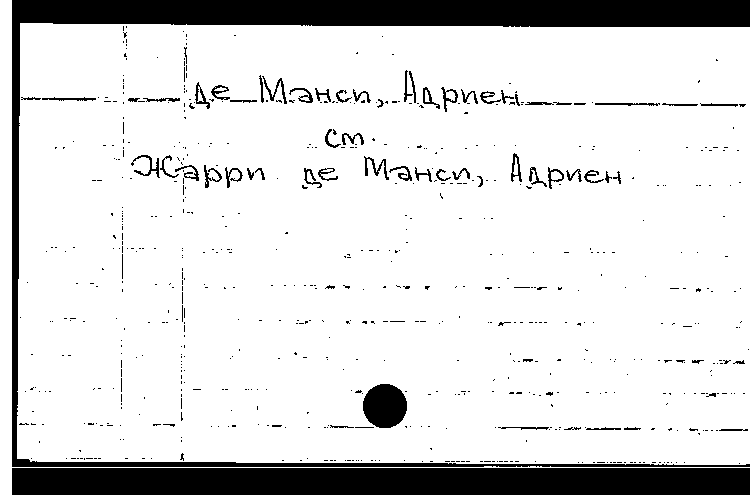 де Манси, Адриен
см.
Жарри де Манси, Адриен